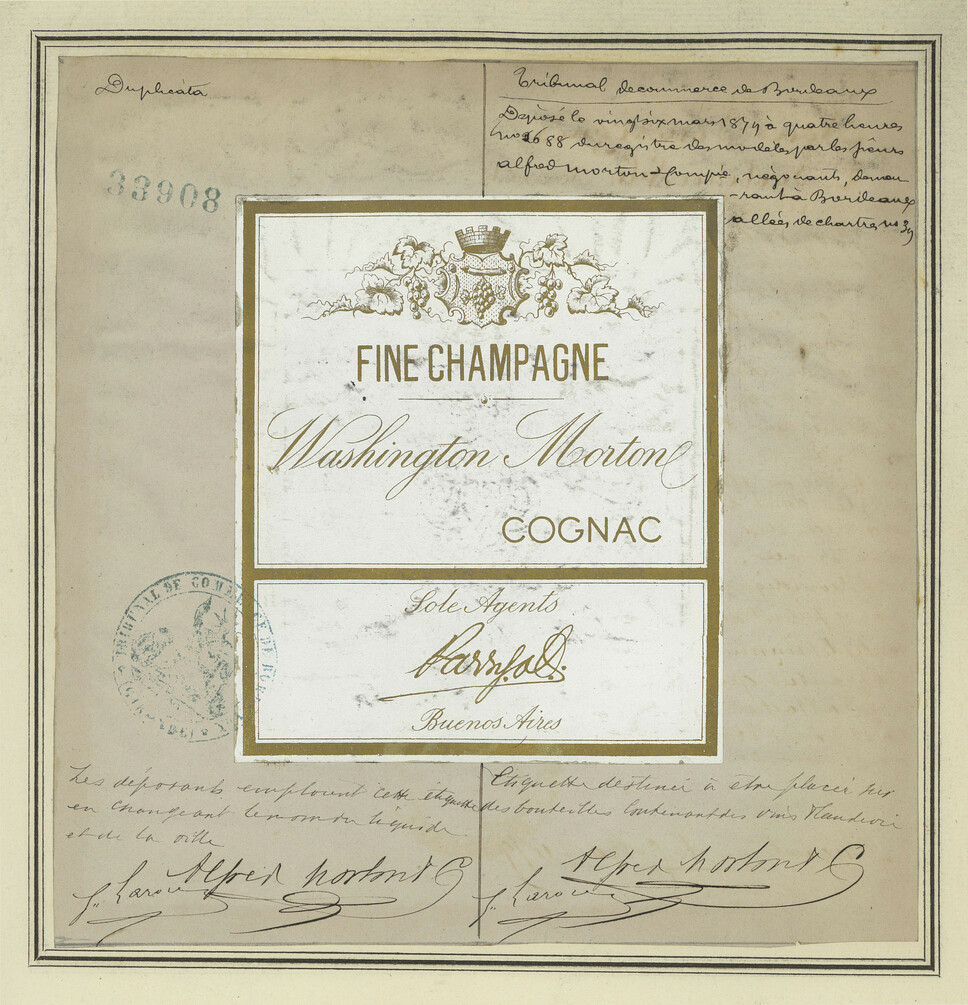 Duplicata
Tribunal de commerce de Bordeaux
Déposé le vingt six mars 1879 à quatre heures
no 2688 du registre des modèles par les sieurs
alfred morton & Compie, négociants, demeu
-rant à Bordeaux
allées de chartres no 39
33908
FINE CHAMPAGNE
Washington Morton
COGNAC
TRIBUNAL DE COMMERCE DE
Sole Agents
Buenos Aires
Les déposants emploient cette étiquette
en changeant le nom du liquide
et de la ville
Alfred Morton & C
Etiquette destinée à être placée sur
des bouteilles contenant des vins
Alfred Morton & C